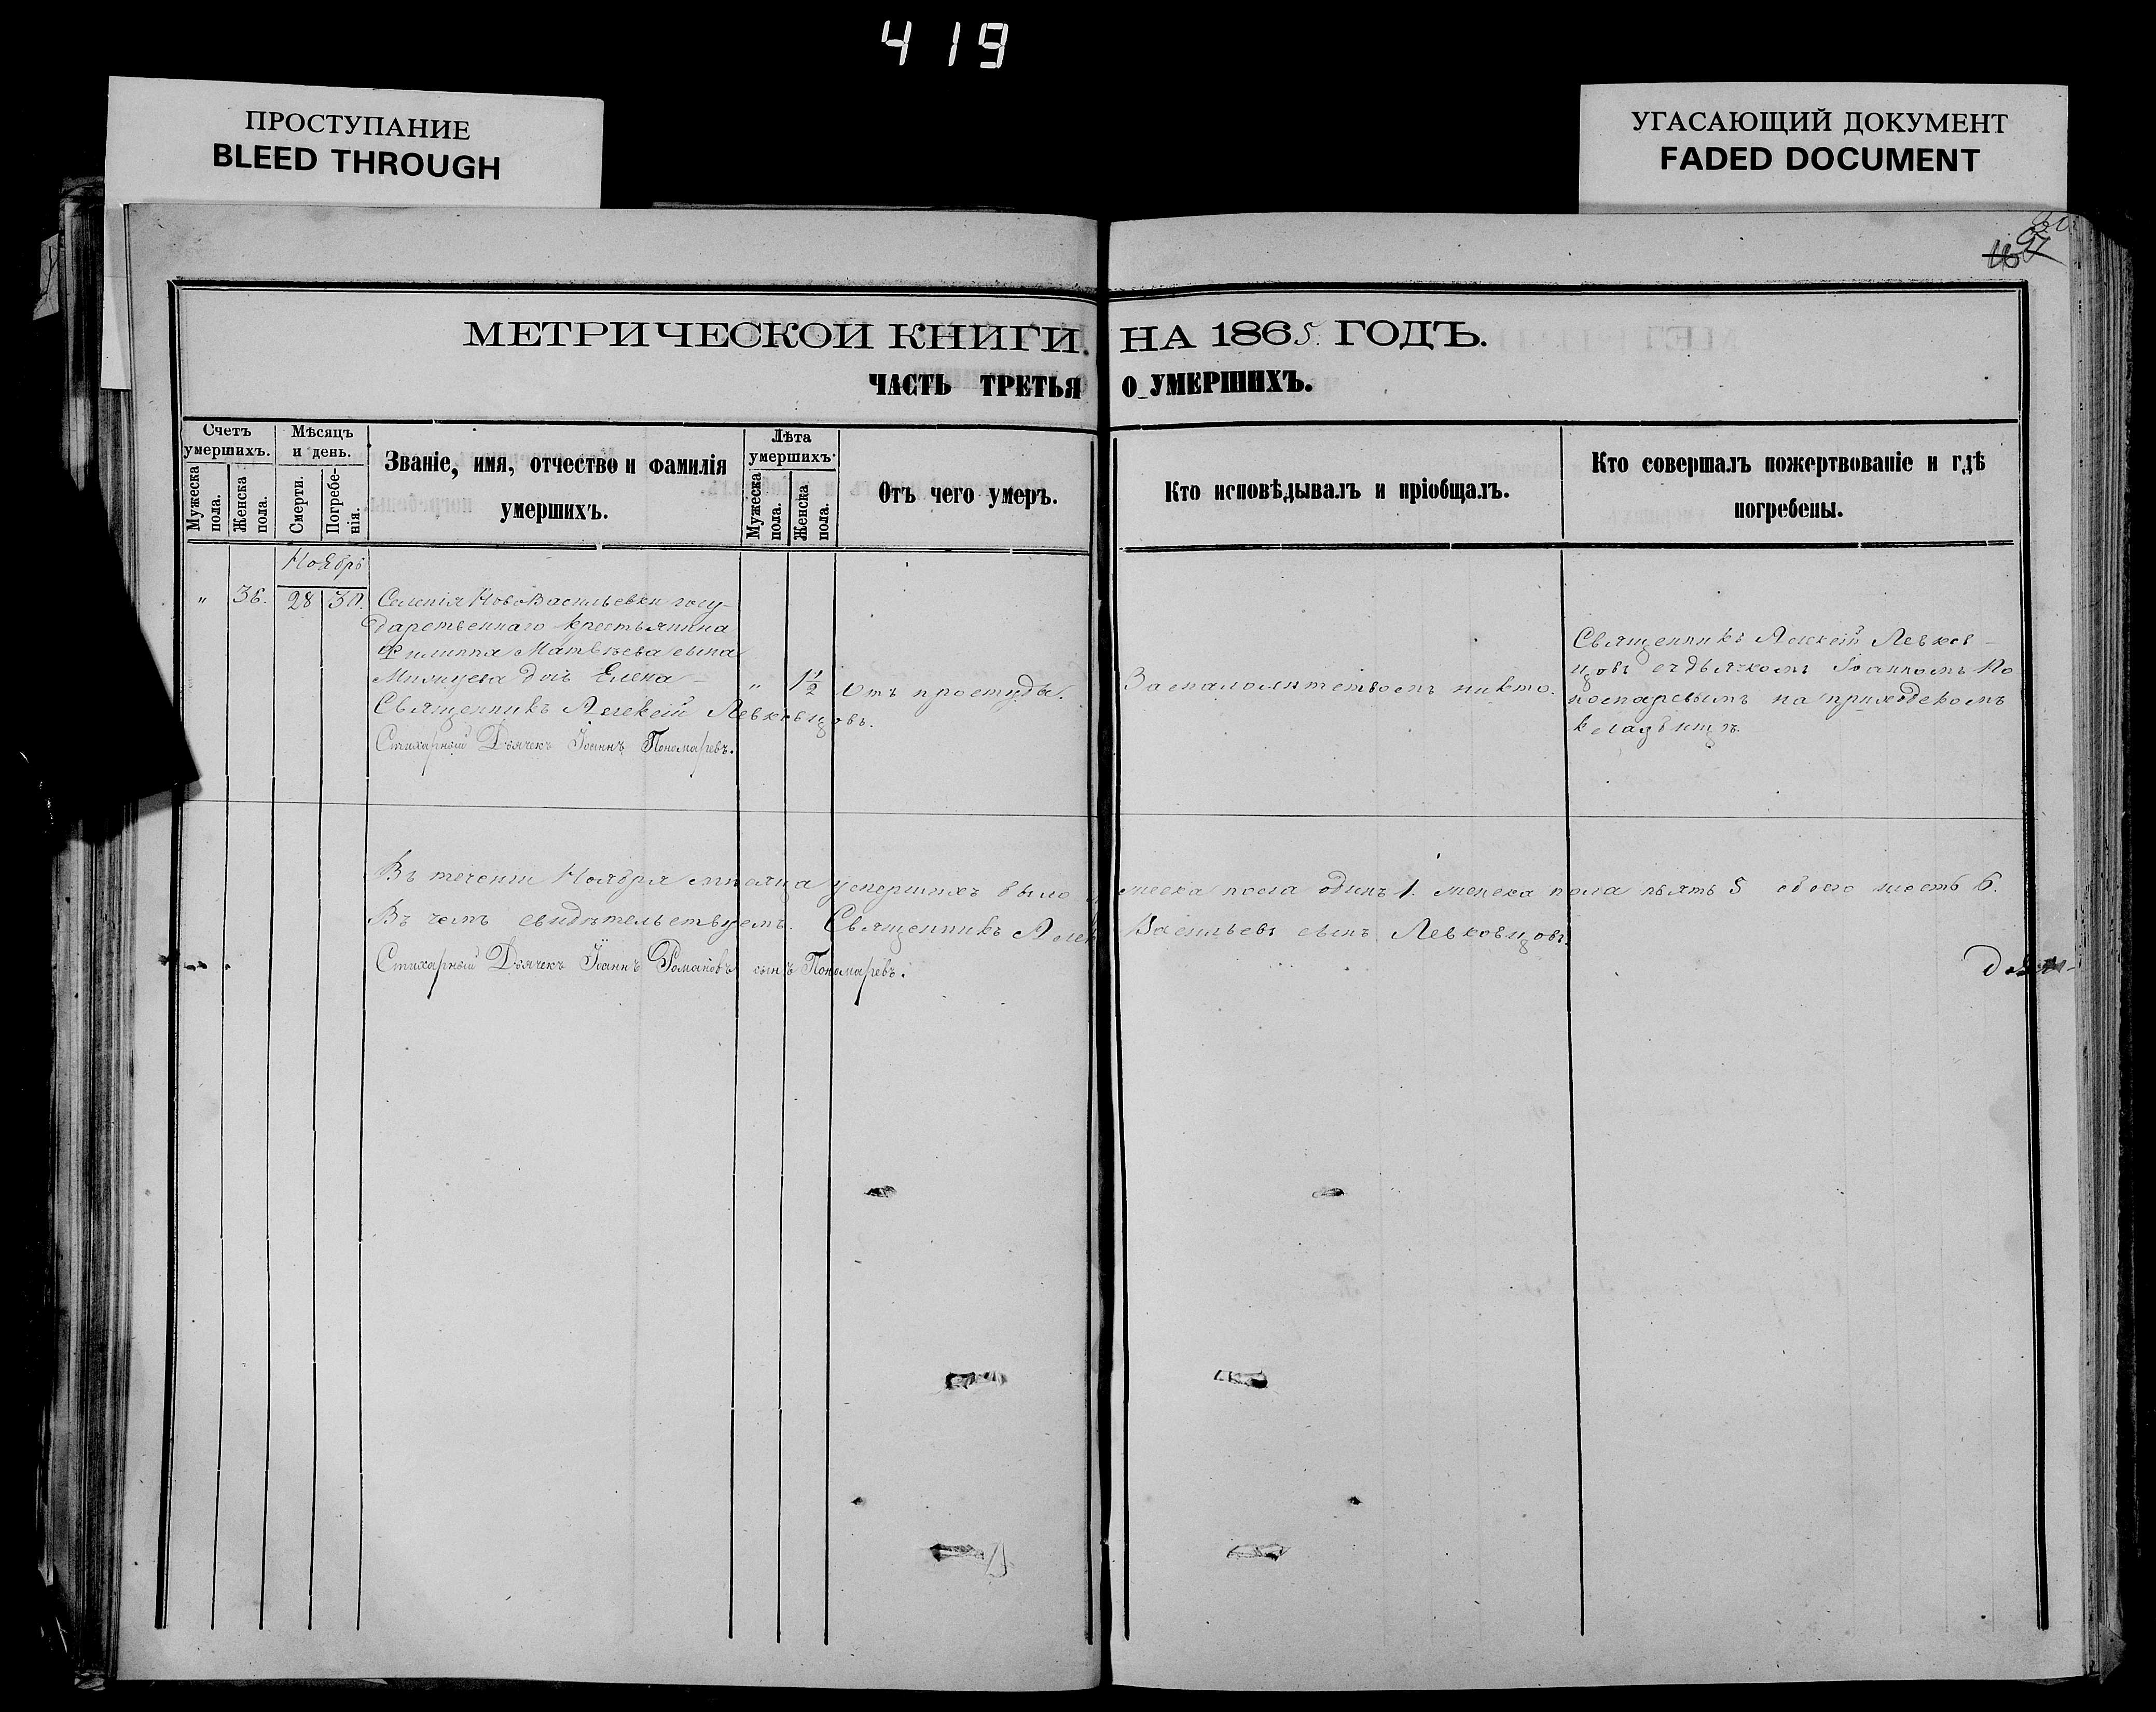 419
ПРОСТУПАНИЕ
BLEED THROUGH
УГАСАЮЩИЙ ДОКУМЕНТ
FADED DOCUMENT
МЕТРИЧЕСКОЙ КНИГИ НА 1865. ГОДЪ.
ЧАСТЬ ТРЕТЬЯ О УМЕРШИХЪ.
Счетъ умершихъ.
Мужеска пола.
Женска пола.
Мѣсяцъ и день.
Смерти.
Погребенія.
Званіе, имя, отчество и фамилія
умершихъ.
Лѣта умершихъ.
Мужеска пола.
Женска пола.
Отъ чего умеръ.
Кто исповѣдывалъ и пріобщалъ.
Кто совершалъ пожертвованіе и гдѣ
погребены.
Ноябрь
" 36. 28 30. Селенія НовоВасильевки госу-
дарственнаго крестьянина
Филиппа Матвѣева сына
дочь Елена
" 1 1/2 Отъ простуды.
За малолѣтствомъ никто.
Священникъ Алексѣй Левков-
цовъ съ дьячкомъ Іоанномъ По
номаревымъ на приходскомъ
кладбищѣ.
Священникъ Алексѣй Левковцовъ.
Стихарный Дьячекъ Іоаннъ Пономаревъ.
Въ теченіи Ноября мѣсяца умершихъ было мужеска пола одинъ 1. женска пола пять 5 обоего шесть 6.
Въ чемъ свидѣтельствуемъ. Священникъ Алек Васильевъ сынъ Левковцовъ.
Стихарный Дьячекъ Іоаннъ Романовъ сынъ Пономаревъ.